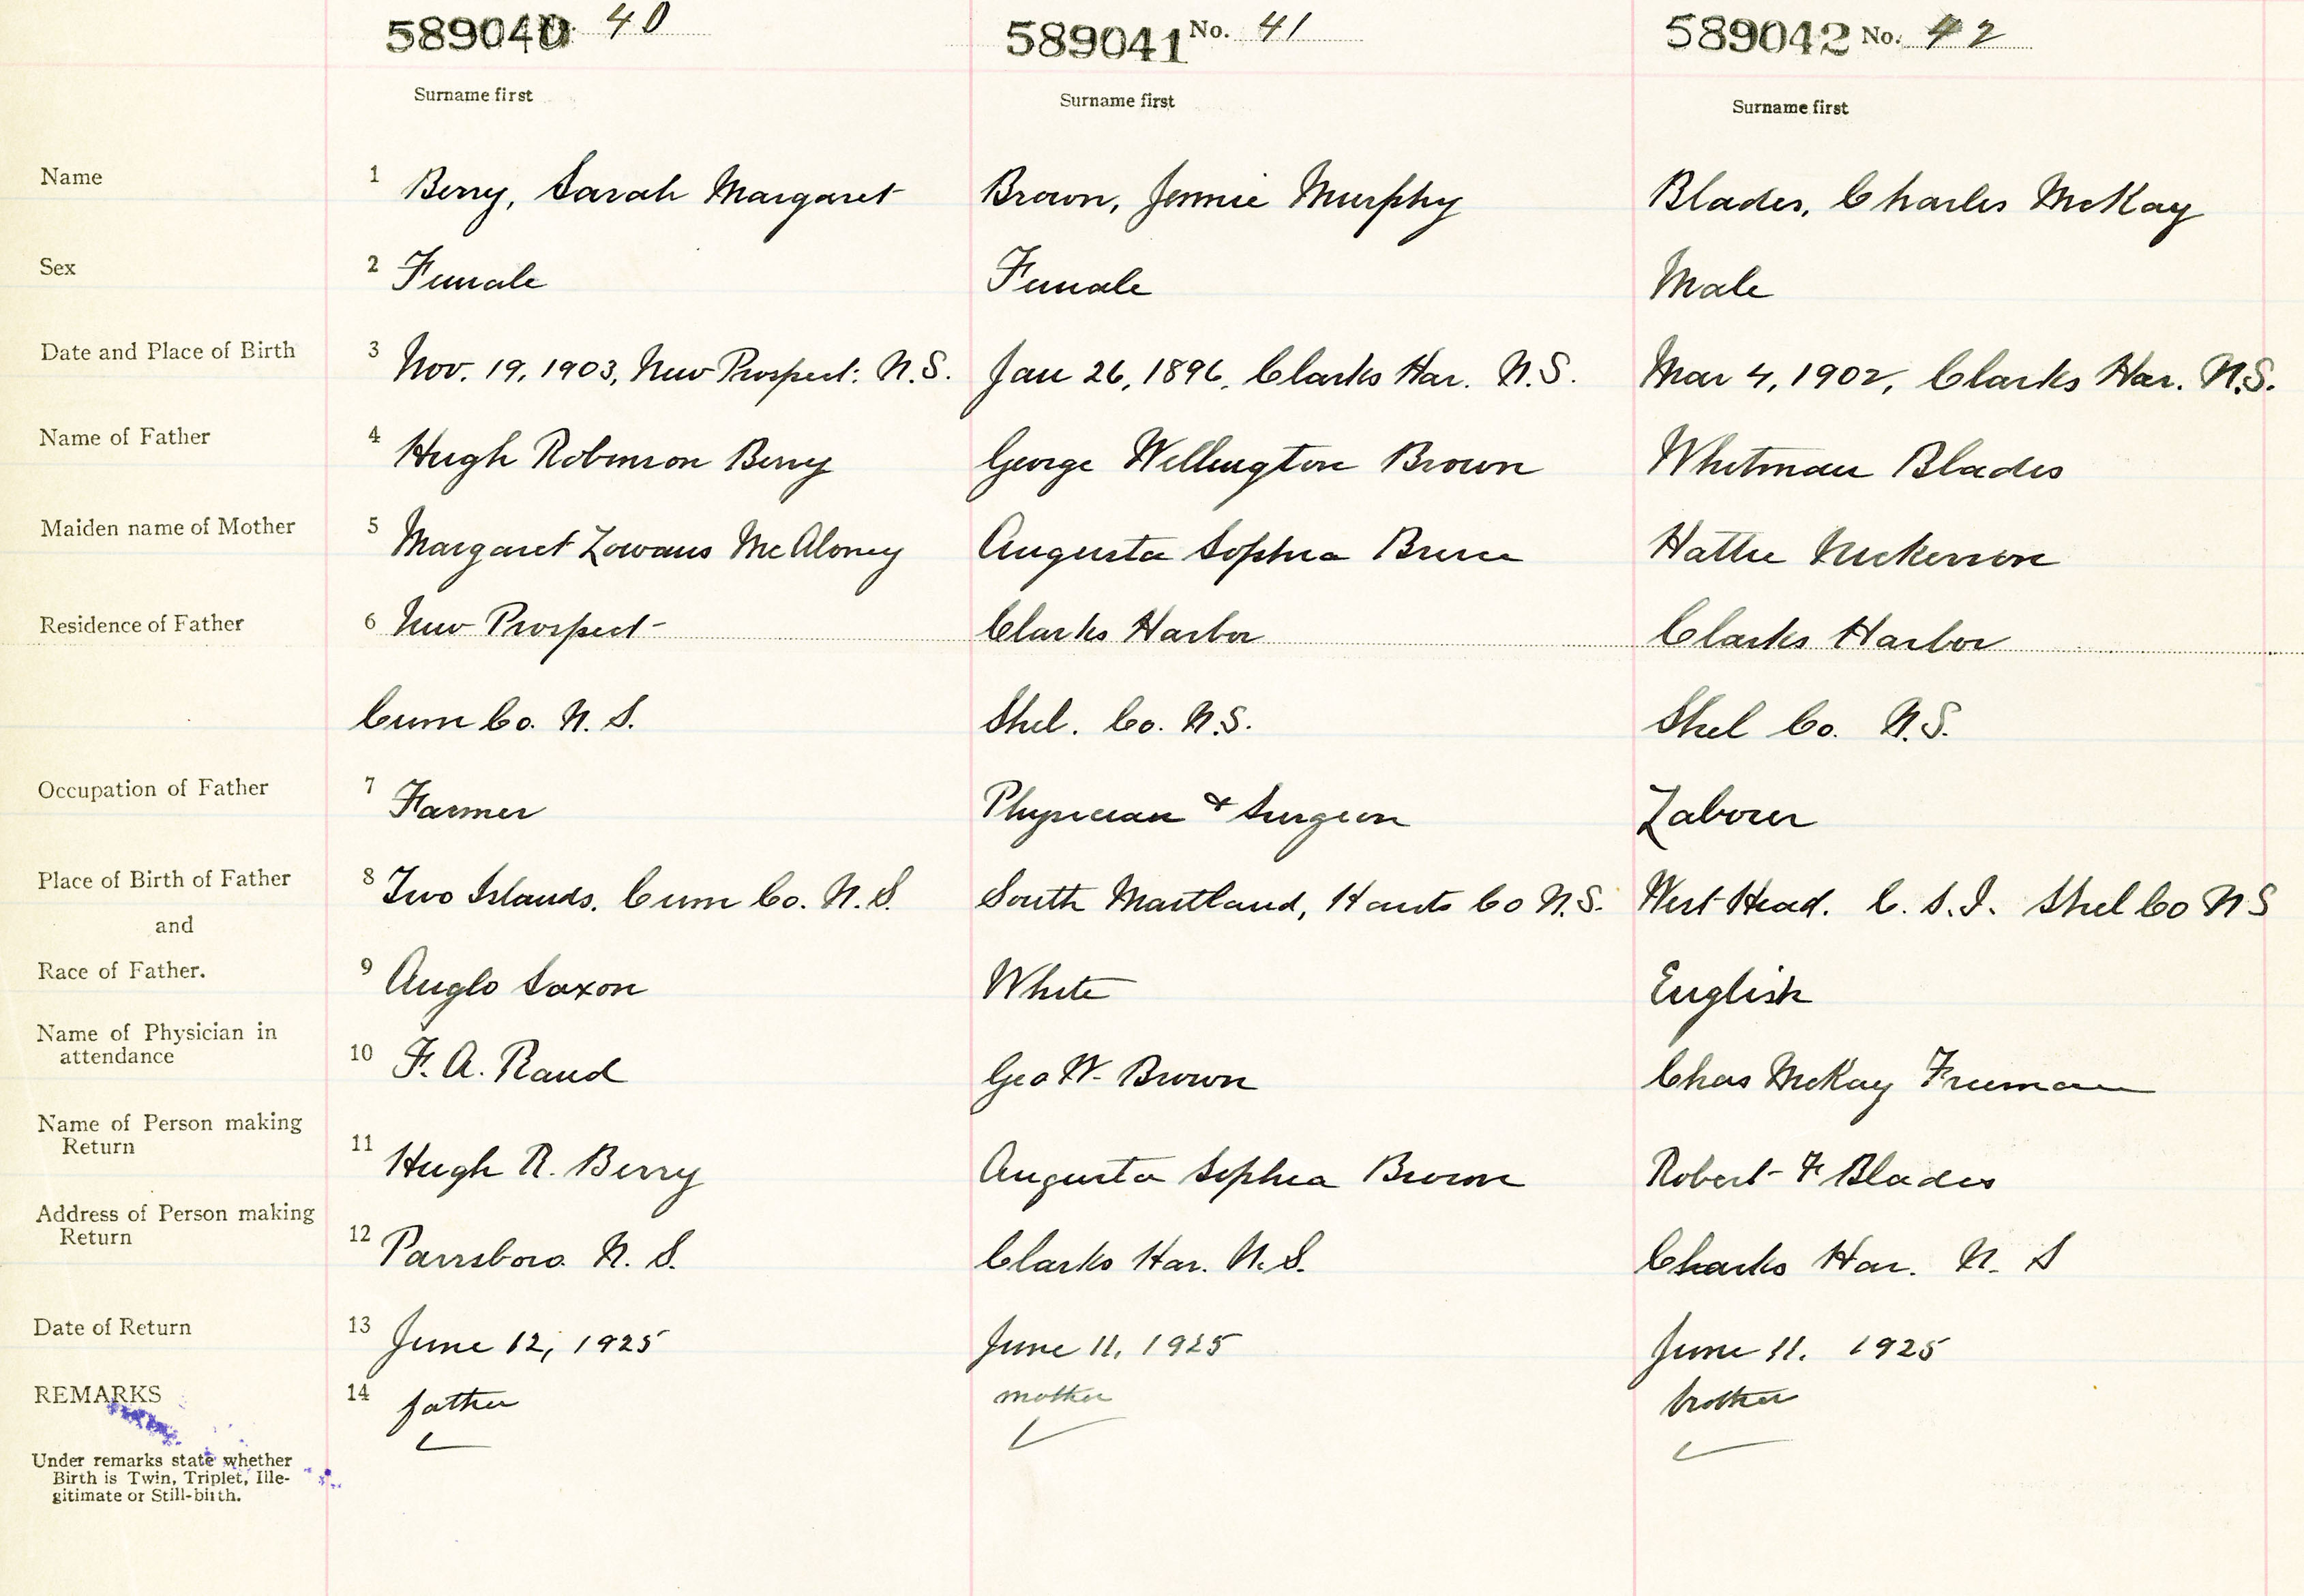 589040 40 589041 No. 41 589042 No. 42
Surname first Surname first Surname first
Name 1 Berry, Sarah Margaret Brown, Jennie Murphy Blades, Charles McKay
Sex 2 Female Female Male
Date and Place of Birth 3 Nov. 19, 1903, New Prospect. N.S. Jan 26, 1896, Clarks Har. N.S. Mar 4, 1902, Clarks Har. N.S.
Name of Father 4 Hugh Robinson Berry George Wellington Brown Whitman Blades
Maiden name of Mother 5 Margaret Lowans McAloney Augusta Sophia Bruce Hattie Nickerson
Residence of Father 6 New Prospect Clarks Harbor Clarks Harbor
Cum Co. N. S. Shel. Co. N.S. Shel Co. N.S.
Occupation of Father 7 Farmer Physician & Surgeon Laborer
Place of Birth of Father 8 Two Islands. Cum Co. N. S. South Maitland, Hants Co N.S. West Head. C. S. I. Shel Co N S
and
Race of Father. 9 Anglo Saxon White English
Name of Physician in 10 F. A. Rand Geo W. Brown Chas McKay Freeman
attendance
Name of Person making 11 Hugh R. Berry Augusta Sophia Brown Robert F Blades
Return
Address of Person making 12 Parrsboro. N. S. Clarks Har. N. S. Clarks Har. N. S
Return
Date of Return 13 June 12, 1925 June 11, 1925 June 11. 1925
REMARKS 14 father mother brother
Under remarks state whether
Birth is Twin, Triplet, Ille-
gitimate or Still-birth.